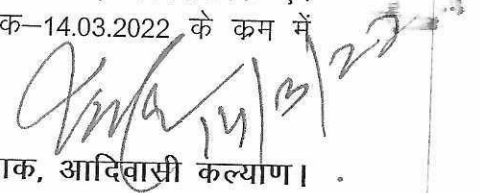 क–14.03.2022 के कम में
14/3/22
ाक, आदिवासी कल्याण।